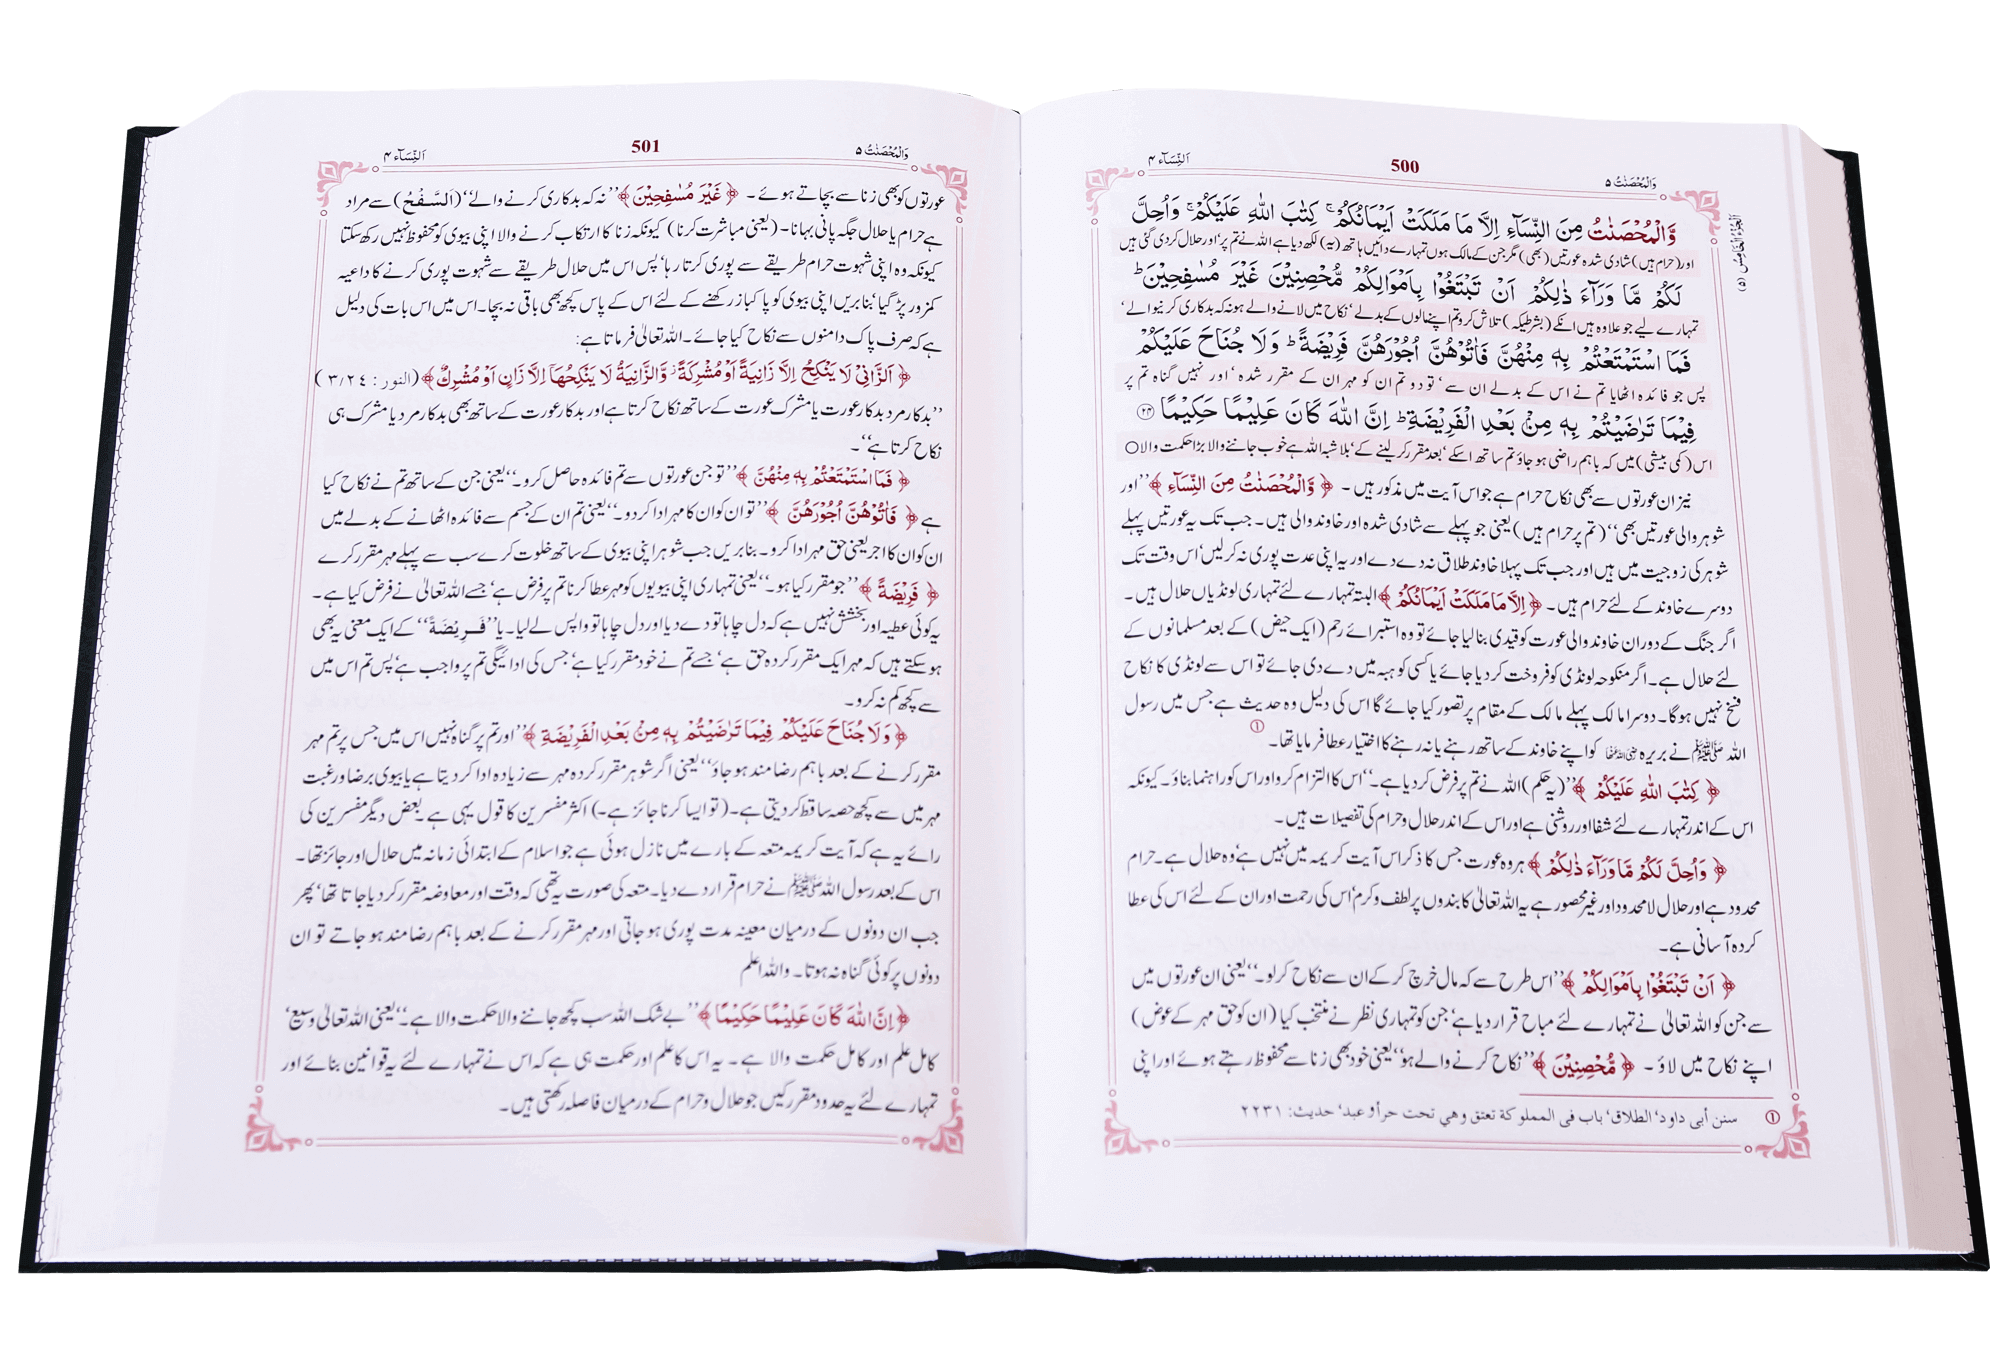 اَلنِّسَآء ۴
500
وَالْمُحْصَنٰتُ ۵
اَلْجُزْءُ الْخَامِسُ (۵)
وَّالْمُحْصَنٰتُ مِنَ النِّسَآءِ اِلَّا مَا مَلَكَتْ اَيْمَانُكُمْ ۚ كِتٰبَ اللّٰهِ عَلَيْكُمْ ۚ وَاُحِلَّ
اور (حرام ہیں) شادی شدہ عورتیں (بھی) مگر جن کے مالک ہوں تمہارے دائیں ہاتھ (یہ) لکھ دیا ہے اللہ نے تم پر‘ اور حلال کر دی گئی ہیں
لَكُمْ مَّا وَرَآءَ ذٰلِكُمْ اَنْ تَبْتَغُوْا بِاَمْوَالِكُمْ مُّحْصِنِيْنَ غَيْرَ مُسٰفِحِيْنَ ؕ
تمہارے لیے جو علاوہ ہیں انکے (بشرطیکہ) تلاش کرو تم اپنے مالوں کے بدلے‘ نکاح میں لانے والے ہو نہ کہ بدکاری کرنیوالے‘
فَمَا اسْتَمْتَعْتُمْ بِهٖ مِنْهُنَّ فَاٰتُوْهُنَّ اُجُوْرَهُنَّ فَرِيْضَةً ؕ وَلَا جُنَاحَ عَلَيْكُمْ
پس جو فائدہ اٹھایا تم نے اس کے بدلے ان سے‘ تو دو تم ان کو مہر ان کے مقرر شدہ‘ اور نہیں گناہ تم پر
فِيْمَا تَرٰضَيْتُمْ بِهٖ مِنْۢ بَعْدِ الْفَرِيْضَةِ ؕ اِنَّ اللّٰهَ كَانَ عَلِيْمًا حَكِيْمًا ۲۴
اس (کمی بیشی) میں کہ باہم راضی ہو جاؤ تم ساتھ اسکے‘ بعد مقرر کر لینے کے‘ بلاشبہ اللہ ہے خوب جاننے والا بڑا حکمت والا ○
نیز ان عورتوں سے بھی نکاح حرام ہے جو اس آیت میں مذکور ہیں۔ ﴿وَّالْمُحْصَنٰتُ مِنَ النِّسَآءِ﴾ ’’اور
شوہر والی عورتیں بھی‘‘ (تم پر حرام ہیں) یعنی جو پہلے سے شادی شدہ اور خاوند والی ہیں۔ جب تک یہ عورتیں پہلے
شوہر کی زوجیت میں ہیں اور جب تک پہلا خاوند طلاق نہ دے دے اور یہ اپنی عدت پوری نہ کر لیں‘ اس وقت تک
دوسرے خاوند کے لئے حرام ہیں۔ ﴿اِلَّا مَا مَلَكَتْ اَيْمَانُكُمْ﴾ البتہ تمہارے لئے تمہاری لونڈیاں حلال ہیں۔
اگر جنگ کے دوران خاوند والی عورت کو قیدی بنا لیا جائے تو وہ استبرائے رحم (ایک حیض) کے بعد مسلمانوں کے
لئے حلال ہے۔ اگر منکوحہ لونڈی کو فروخت کر دیا جائے یا کسی کو ہبہ میں دے دی جائے تو اس سے لونڈی کا نکاح
فسخ نہیں ہوگا۔ دوسرا مالک پہلے مالک کے مقام پر تصور کیا جائے گا اس کی دلیل وہ حدیث ہے جس میں رسول
اللہ ﷺ نے بریرہ رضی اللہ عنہا کو اپنے خاوند کے ساتھ رہنے یا نہ رہنے کا اختیار عطا فرمایا تھا۔ ①
﴿كِتٰبَ اللّٰهِ عَلَيْكُمْ﴾ ’’(یہ حکم) اللہ نے تم پر فرض کر دیا ہے۔‘‘ اس کا التزام کرو اور اس کو راہنما بناؤ۔ کیونکہ
اس کے اندر تمہارے لئے شفا اور روشنی ہے اور اس کے اندر حلال و حرام کی تفصیلات ہیں۔
﴿وَاُحِلَّ لَكُمْ مَّا وَرَآءَ ذٰلِكُمْ﴾ ہر وہ عورت جس کا ذکر اس آیت کریمہ میں نہیں ہے‘ وہ حلال ہے۔ حرام
محدود ہے اور حلال لامحدود اور غیر محصور ہے یہ اللہ تعالیٰ کا بندوں پر لطف و کرم‘ اس کی رحمت اور ان کے لئے اس کی عطا
کردہ آسانی ہے۔
﴿اَنْ تَبْتَغُوْا بِاَمْوَالِكُمْ﴾ ’’اس طرح سے کہ مال خرچ کر کے ان سے نکاح کر لو۔‘‘ یعنی ان عورتوں میں
سے جن کو اللہ تعالیٰ نے تمہارے لئے مباح قرار دیا ہے‘ جن کو تمہاری نظر نے منتخب کیا (ان کو حق مہر کے عوض)
اپنے نکاح میں لاؤ۔ ﴿مُّحْصِنِيْنَ﴾ ’’نکاح کرنے والے ہو‘‘ یعنی خود بھی زنا سے محفوظ رہتے ہوئے اور اپنی
① سنن أبی داود‘ الطلاق‘ باب فی المملوکة تعتق وهي تحت حر أو عبد‘ حديث: ٢٢٣١
اَلنِّسَآء ۴
501
وَالْمُحْصَنٰتُ ۵
عورتوں کو بھی زنا سے بچاتے ہوئے۔ ﴿غَيْرَ مُسٰفِحِيْنَ﴾ ’’نہ کہ بدکاری کرنے والے‘‘ (اَلسَّفْحُ) سے مراد
ہے حرام یا حلال جگہ پانی بہانا۔ (یعنی مباشرت کرنا) کیونکہ زنا کا ارتکاب کرنے والا اپنی بیوی کو محفوظ نہیں رکھ سکتا
کیونکہ وہ اپنی شہوت حرام طریقے سے پوری کرتا رہا‘ پس اس میں حلال طریقے سے شہوت پوری کرنے کا داعیہ
کمزور پڑ گیا‘ بنابریں اپنی بیوی کو پاکباز رکھنے کے لئے اس کے پاس کچھ بھی باقی نہ بچا۔ اس میں اس بات کی دلیل
ہے کہ صرف پاک دامنوں سے نکاح کیا جائے۔ اللہ تعالیٰ فرماتا ہے:
﴿اَلزَّانِیْ لَا يَنْكِحُ اِلَّا زَانِيَةً اَوْ مُشْرِكَةً ۡ وَّالزَّانِيَةُ لَا يَنْكِحُهَا اِلَّا زَانٍ اَوْ مُشْرِكٌ﴾ (النور: ٣/٢٤)
’’بدکار مرد بدکار عورت یا مشرک عورت کے ساتھ نکاح کرتا ہے اور بدکار عورت کے ساتھ بھی بدکار مرد یا مشرک ہی
نکاح کرتا ہے‘‘۔
﴿فَمَا اسْتَمْتَعْتُمْ بِهٖ مِنْهُنَّ﴾ ’’تو جن عورتوں سے تم فائدہ حاصل کرو۔‘‘ یعنی جن کے ساتھ تم نے نکاح کیا
ہے ﴿فَاٰتُوْهُنَّ اُجُوْرَهُنَّ﴾ ’’تو ان کو ان کا مہر ادا کر دو۔‘‘ یعنی تم ان کے جسم سے فائدہ اٹھانے کے بدلے میں
ان کو ان کا اجر یعنی حق مہر ادا کرو۔ بنابریں جب شوہر اپنی بیوی کے ساتھ خلوت کرے سب سے پہلے مہر مقرر کرے
﴿فَرِيْضَةً﴾ ’’جو مقرر کیا ہو۔‘‘ یعنی تمہاری اپنی بیویوں کو مہر عطا کرنا تم پر فرض ہے‘ جسے اللہ تعالیٰ نے فرض کیا ہے۔
یہ کوئی عطیہ اور بخشش نہیں ہے کہ دل چاہا تو دے دیا اور دل چاہا تو واپس لے لیا۔ یا ’’فَرِيْضَةً‘‘ کے ایک معنی یہ بھی
ہو سکتے ہیں کہ مہر ایک مقرر کردہ حق ہے‘ جسے تم نے خود مقرر کیا ہے‘ جس کی ادائیگی تم پر واجب ہے‘ پس تم اس میں
سے کچھ کم نہ کرو۔
﴿وَلَا جُنَاحَ عَلَيْكُمْ فِيْمَا تَرٰضَيْتُمْ بِهٖ مِنْۢ بَعْدِ الْفَرِيْضَةِ﴾ ’’اور تم پر گناہ نہیں اس میں جس پر تم مہر
مقرر کرنے کے بعد باہم رضا مند ہو جاؤ‘‘ یعنی اگر شوہر مقرر کردہ مہر سے زیادہ ادا کر دیتا ہے یا بیوی برضا و رغبت
مہر میں سے کچھ حصہ ساقط کر دیتی ہے۔ (تو ایسا کرنا جائز ہے۔) اکثر مفسرین کا قول یہی ہے بعض دیگر مفسرین کی
رائے یہ ہے کہ آیت کریمہ متعہ کے بارے میں نازل ہوئی ہے جو اسلام کے ابتدائی زمانہ میں حلال اور جائز تھا۔
اس کے بعد رسول اللہ ﷺ نے حرام قرار دے دیا۔ متعہ کی صورت یہ تھی کہ وقت اور معاوضہ مقرر کر دیا جاتا تھا‘ پھر
جب ان دونوں کے درمیان معینہ مدت پوری ہو جاتی اور مہر مقرر کرنے کے بعد باہم رضا مند ہو جاتے تو ان
دونوں پر کوئی گناہ نہ ہوتا۔ واللہ اعلم
﴿اِنَّ اللّٰهَ كَانَ عَلِيْمًا حَكِيْمًا﴾ ’’بے شک اللہ سب کچھ جاننے والا حکمت والا ہے۔‘‘ یعنی اللہ تعالیٰ وسیع‘
کامل علم اور کامل حکمت والا ہے۔ یہ اس کا علم اور حکمت ہی ہے کہ اس نے تمہارے لئے یہ قوانین بنائے اور
تمہارے لئے یہ حدود مقرر کیں جو حلال و حرام کے درمیان فاصلہ رکھتی ہیں۔